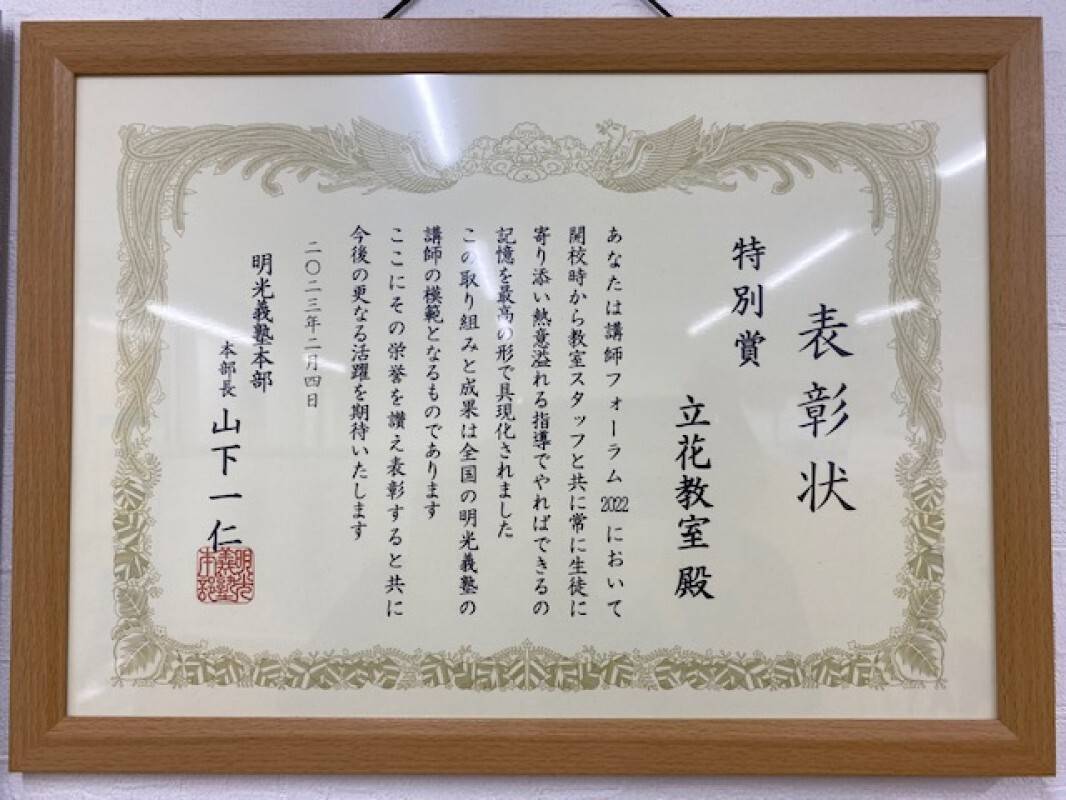 表彰状
特別賞
立花教室殿
あなたは講師フォーラム2022において
開校時から教室スタッフと共に常に生徒に
寄り添い熱意溢れる指導でやればできるの
記憶を最高の形で具現化されました
この取り組みと成果は全国の明光義塾の
講師の模範となるものであります
ここにその栄誉を讃え表彰すると共に
今後の更なる活躍を期待いたします
二〇二三年二月四日
明光義塾本部
本部長 山下一仁
明光
義塾
本部